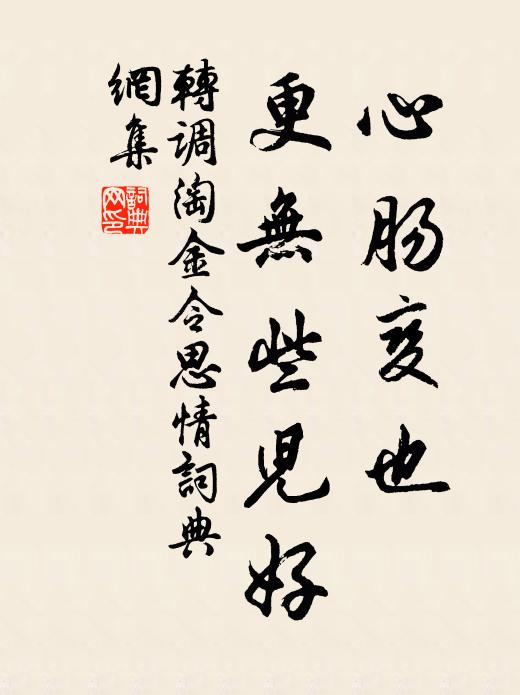 心肠变也
更無些児好
轉調淘金令思情詞典
網集
詞典
网印